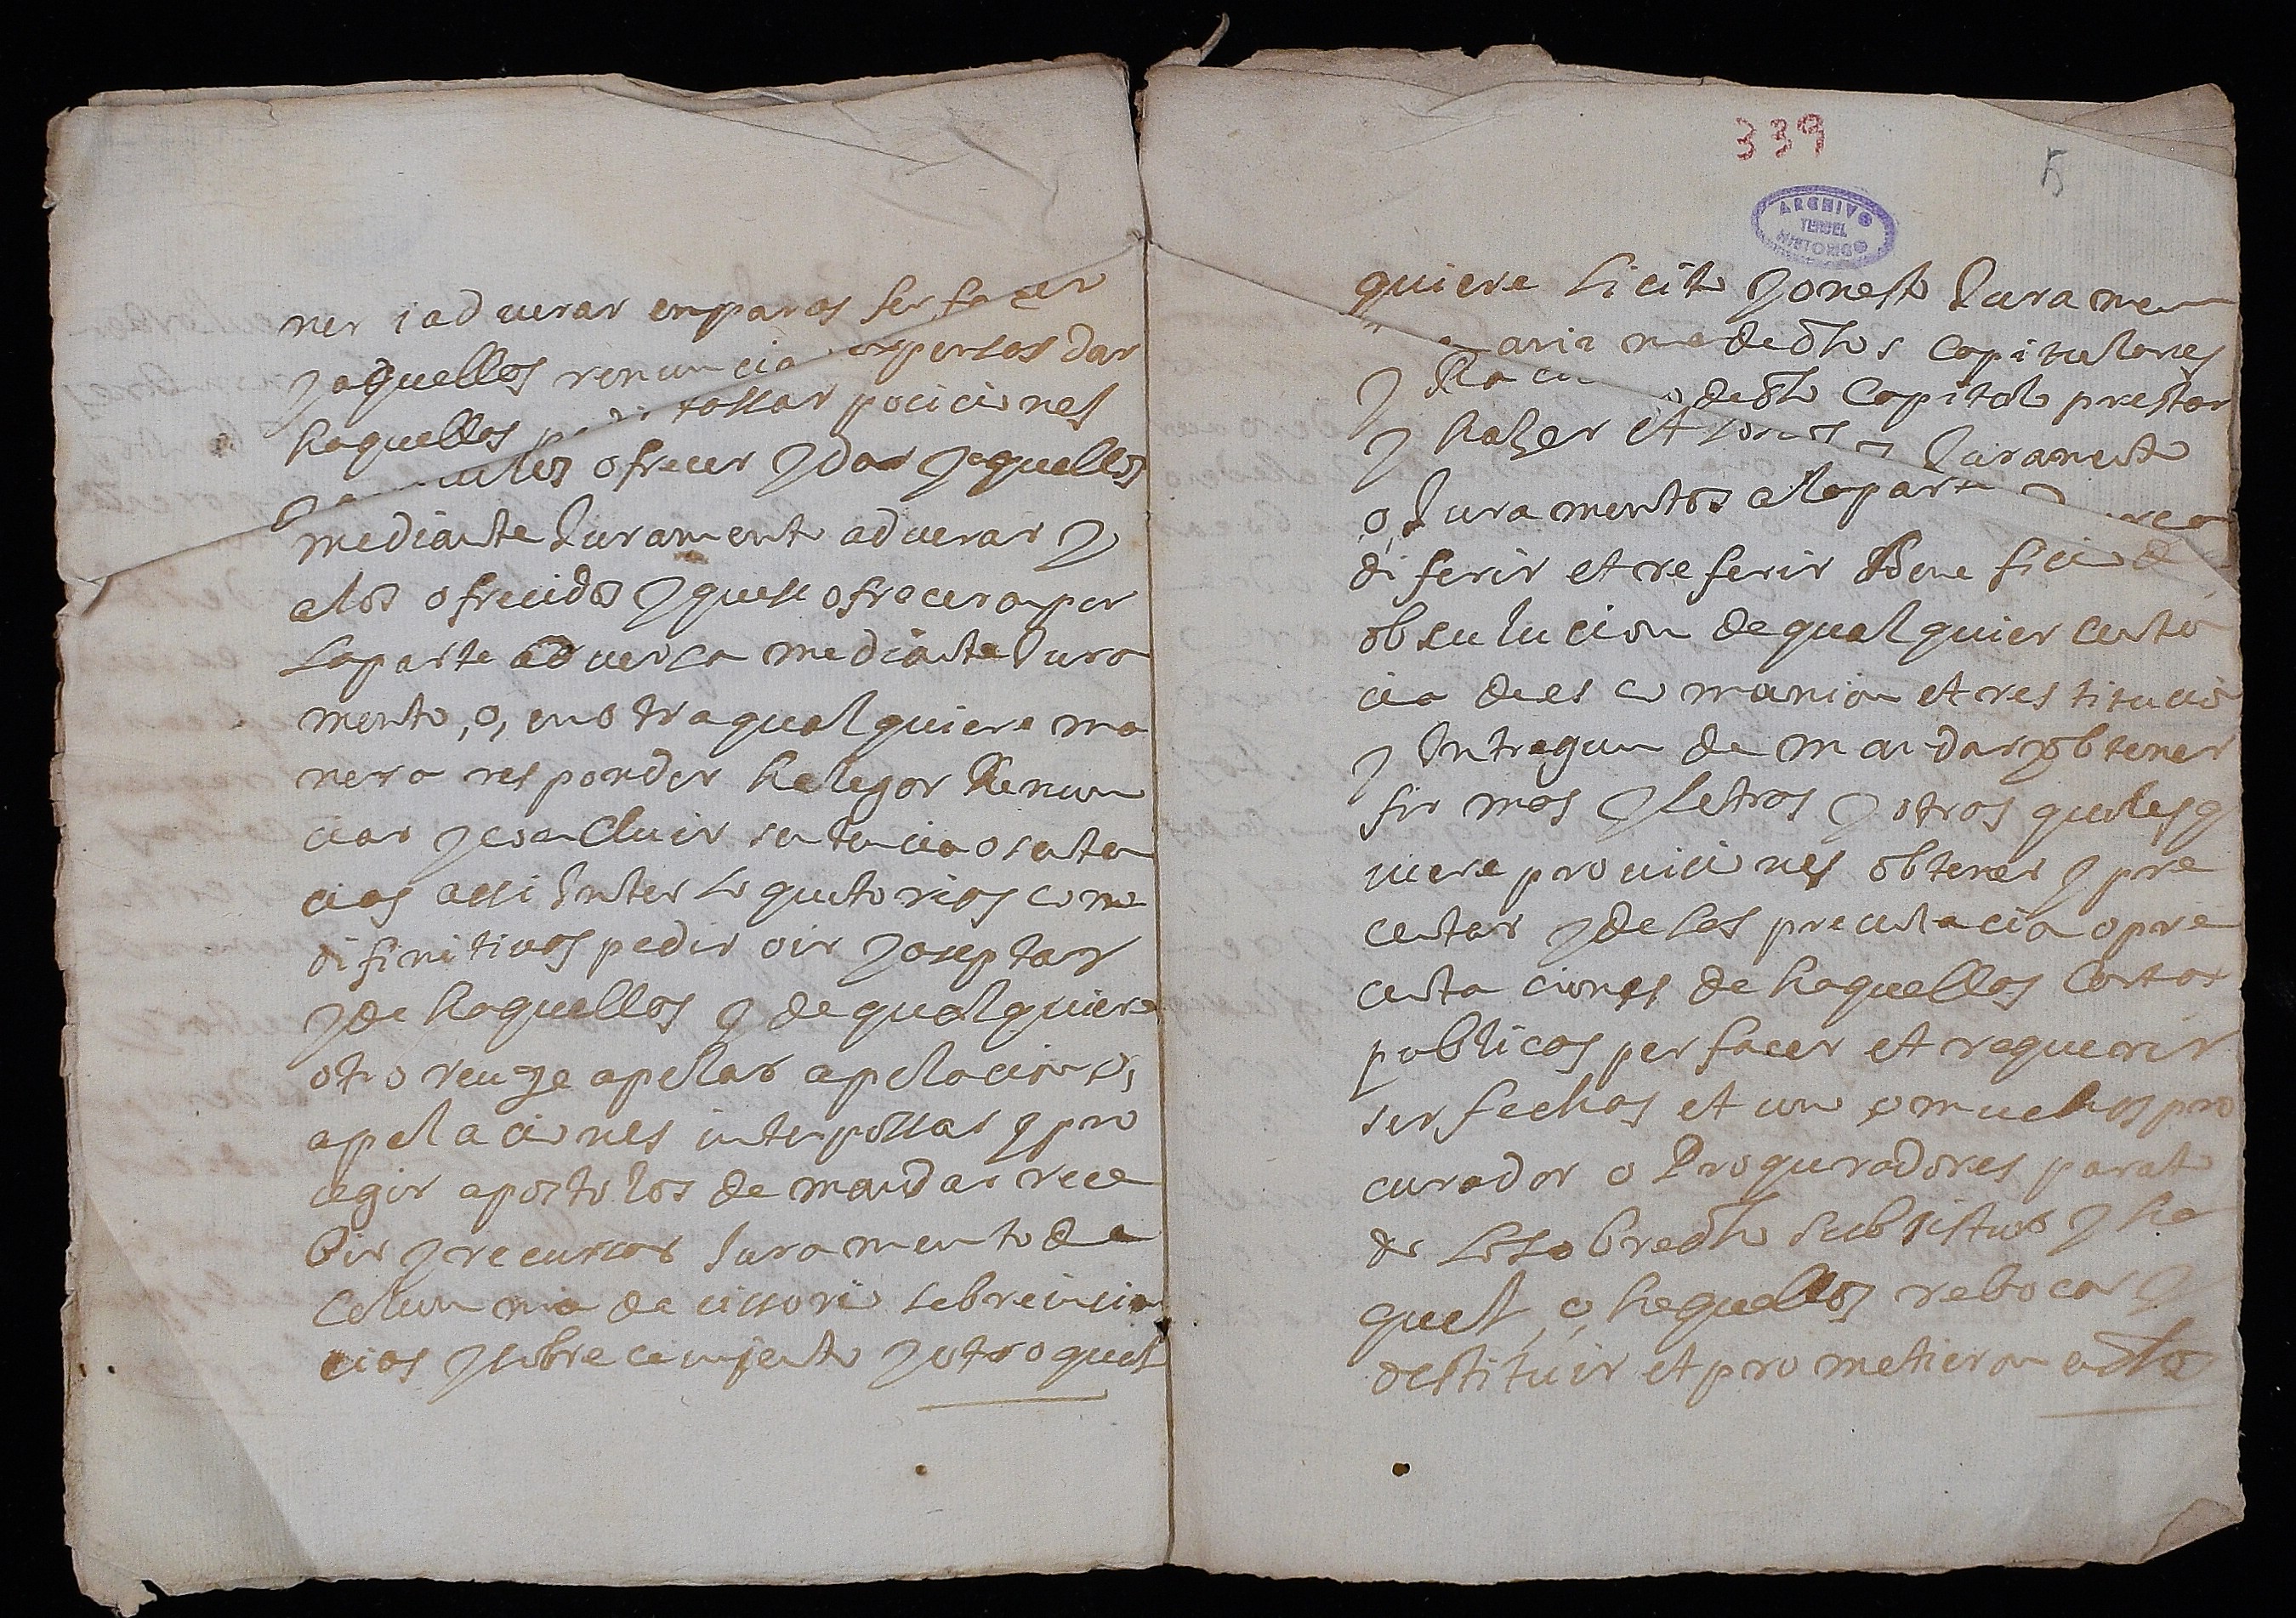 ner i aduerar emparas ser facer
y aquellos renuncia expensas dar
haquellas tassar pociciones
ofrecer y dar y aquellos
mediante Jurament aduerar y
alos ofrecidos y quese ofreceran por
laparte aduersa mediante Jura
mento, o, en otra qualquiere ma
nera responder halegar Renun
ciar y concluir sentencia o senten
cias assi Interloqutorias como
difinitiuas pedir oir y aseptar
y de haquellas y de qualquiere
otro reuge apelar apelacion o,
apelaciones interpossar y pro
cegir apostolos demandar rece
bir y recussar Juramento de
calumnia de cissorio sobreiuicia
cios y sobrecimjento y otro qual
339
5
ARCHIVO
TERUEL
HISTORICO
quiere licito y onesto Juramen
anima de dhos Capitulares
y de dho Capitol prestar
y hazer et Jurament
o, Juramentos a la part
diferir et referir Benefficio de
obsulucion de qualquier senten
cia de escomanion et restitucio
y Integrum demandar y obtener
firmas y letras y otros qualesq
uiere prouiciones obtener y pre
centar y de las precentacion o pre
centaciones de haquellas Cartas
publicas per facer et requerir
ser fechas et un o muchos pro
curador o Proquradores parato
do lo sobredho substituir y ha
quel, o, haquellos rebocar y
destituir et prometieron en dho